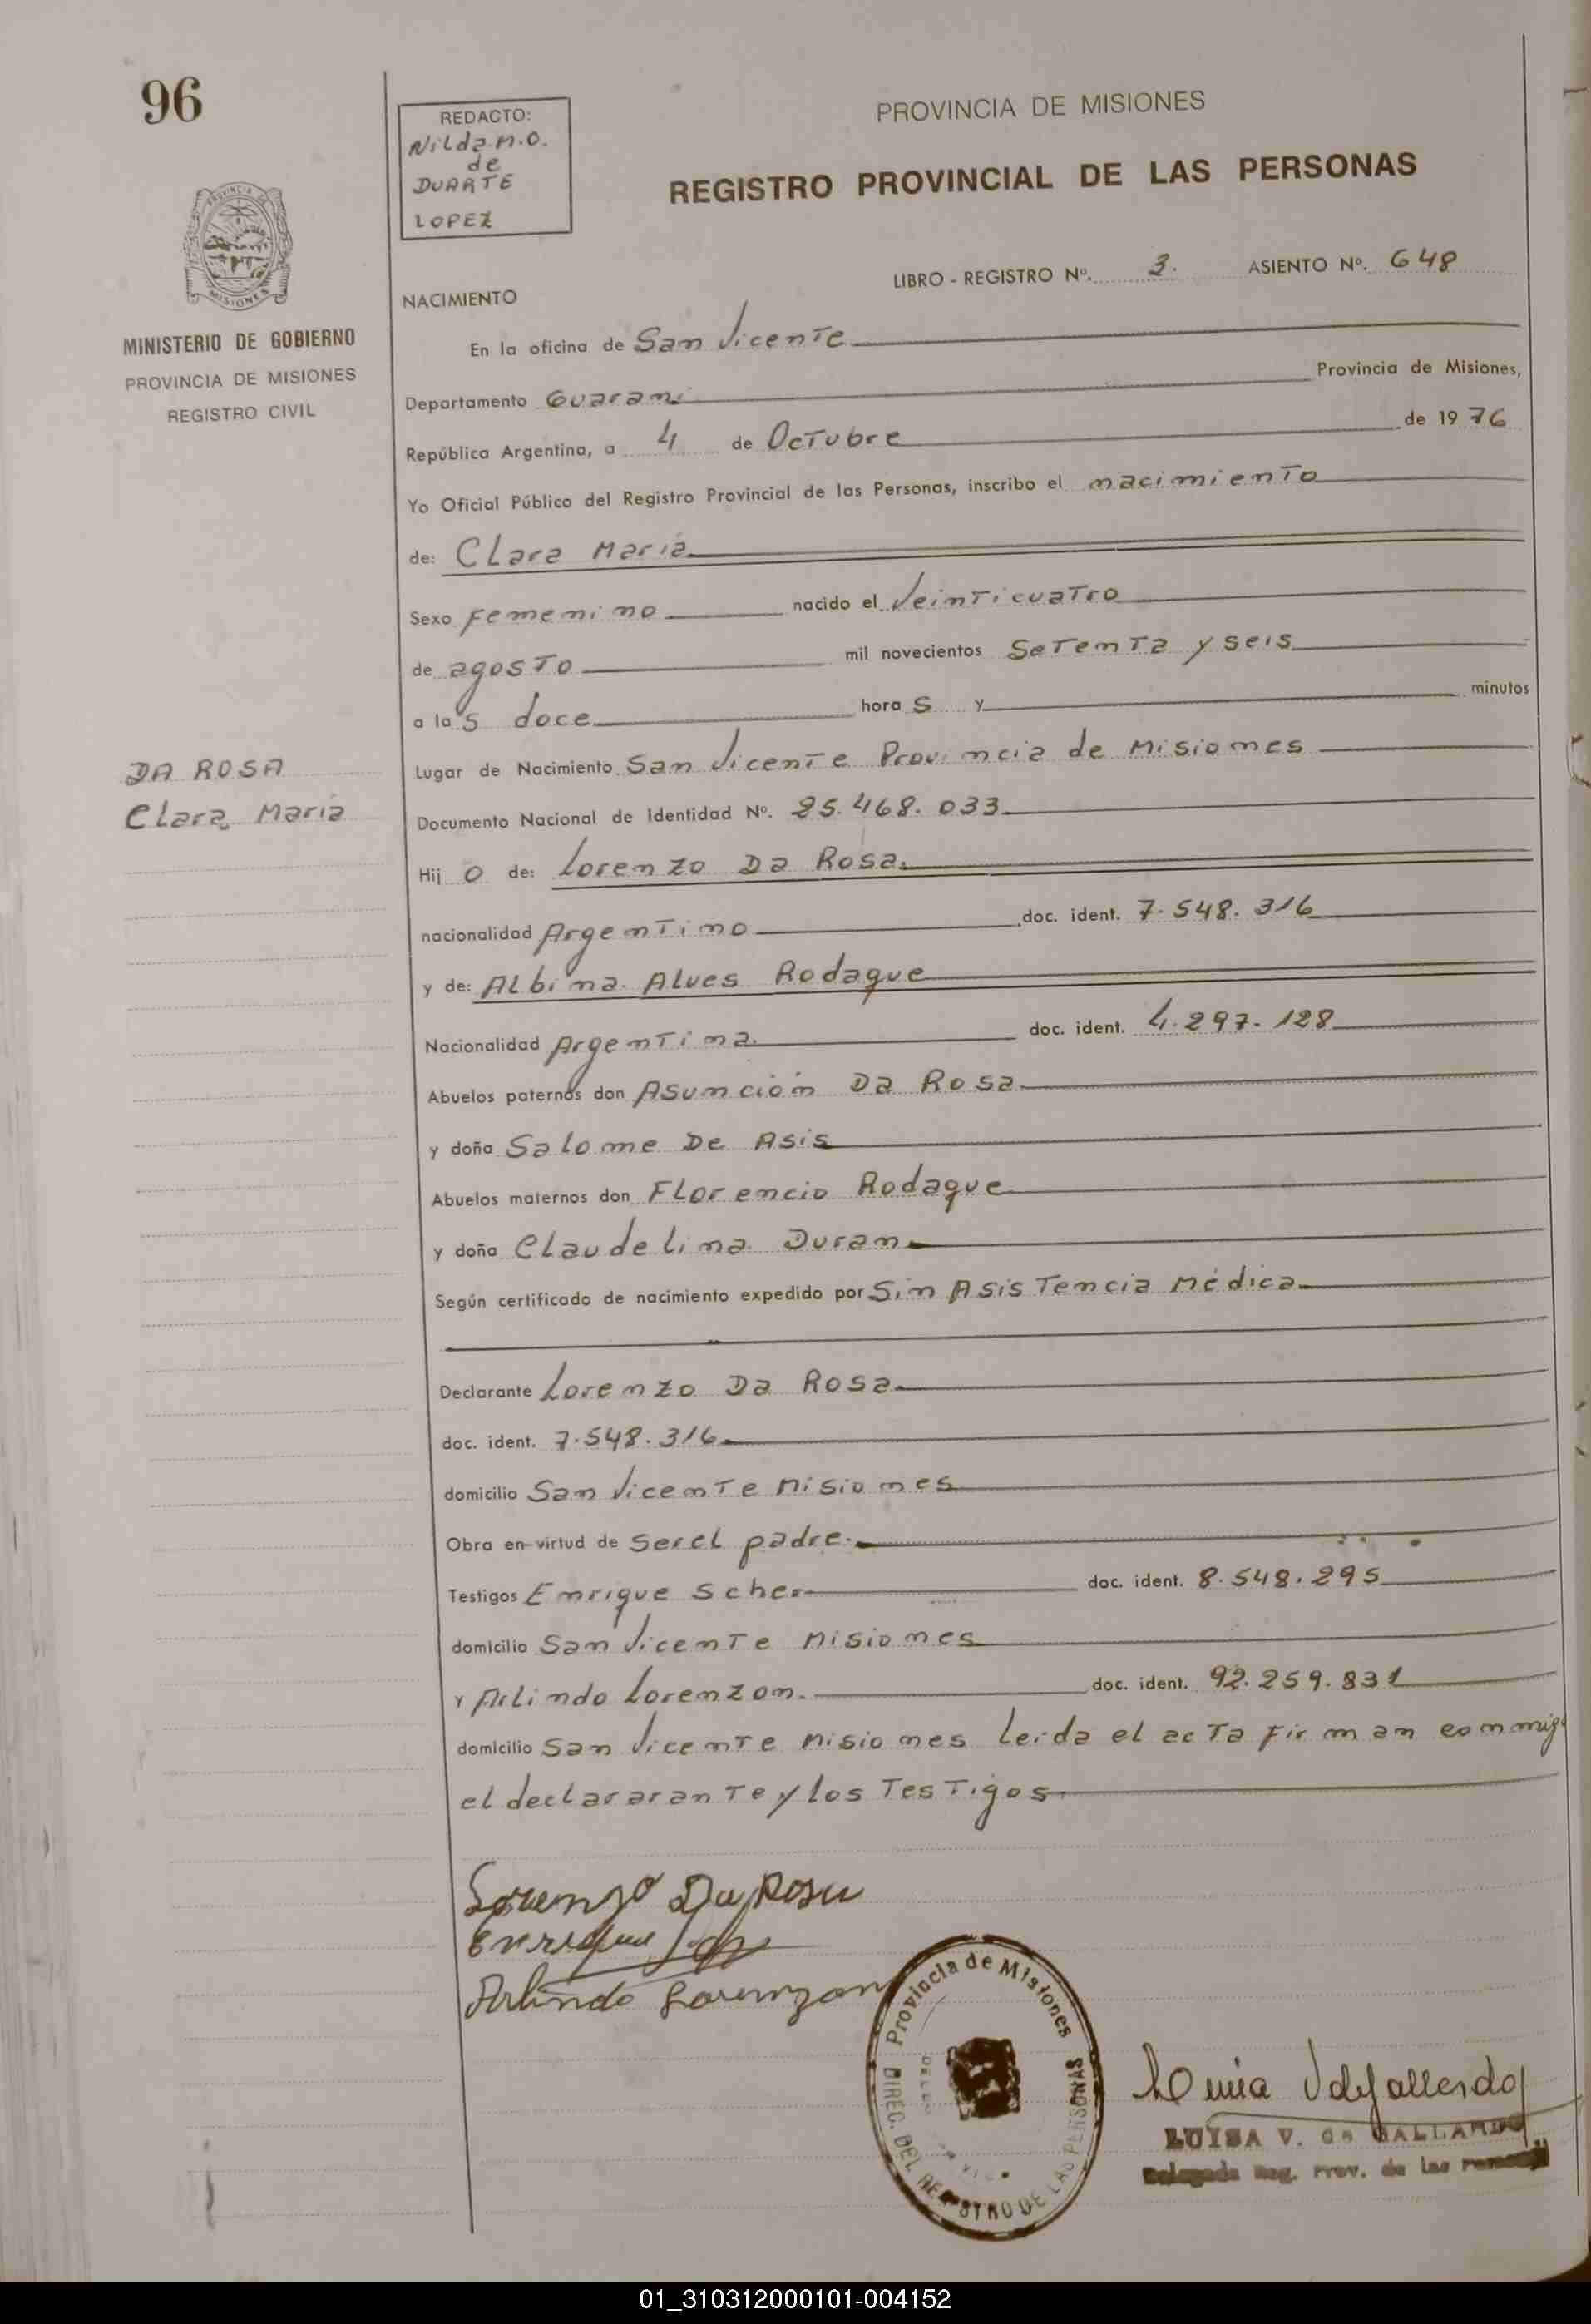 96
REDACTO:
Nilda.M.O.
de
DUARTE
LOPEZ
PROVINCIA DE MISIONES
REGISTRO PROVINCIAL DE LAS PERSONAS
PROVINCIA DE
MISIONES
MINISTERIO DE GOBIERNO
PROVINCIA DE MISIONES
REGISTRO CIVIL
LIBRO - REGISTRO Nº. 3. ASIENTO Nº. 648
NACIMIENTO
En la oficina de San Vicente
Departamento Guarani Provincia de Misiones,
República Argentina, a 4 de Octubre de 1976
Yo Oficial Público del Registro Provincial de las Personas, inscribo el nacimiento
de: Clara María
Sexo Femenino nacido el Veinticuatro
de agosto mil novecientos Setenta y seis
a las doce horas y minutos
DA ROSA
Clara María
Lugar de Nacimiento San Vicente Provincia de Misiones
Documento Nacional de Identidad Nº. 25.468.033
Hijo de: Lorenzo Da Rosa
nacionalidad Argentino doc. ident. 7.548.316
y de: Albina Alves Rodaque
Nacionalidad Argentina doc. ident. 4.297.128
Abuelos paternos don Asunción Da Rosa
y doña Salome De Asis
Abuelos maternos don Florencio Rodaque
y doña Claudelina Duran
Según certificado de nacimiento expedido por Sin Asistencia Médica
Declarante Lorenzo Da Rosa
doc. ident. 7.548.316
domicilio San Vicente Misiones
Obra en virtud de Ser el padre.
Testigos Enrique Scher doc. ident. 8.548.295
domicilio San Vicente Misiones
y Arlindo Lorenzon. doc. ident. 92.259.831
domicilio San Vicente Misiones Leida el acta firman conmigo
el declararante y los Testigos
Lorenzo Da Rosa
Enrique
Arlindo Lorenzon
Provincia de Misiones
DIREC. DEL REGISTRO DE LAS PERSONAS
Luisa V de Gallardo
LUISA V. de GALLARDO
Delegada Reg. Prov. de las Personas
01_310312000101-004152